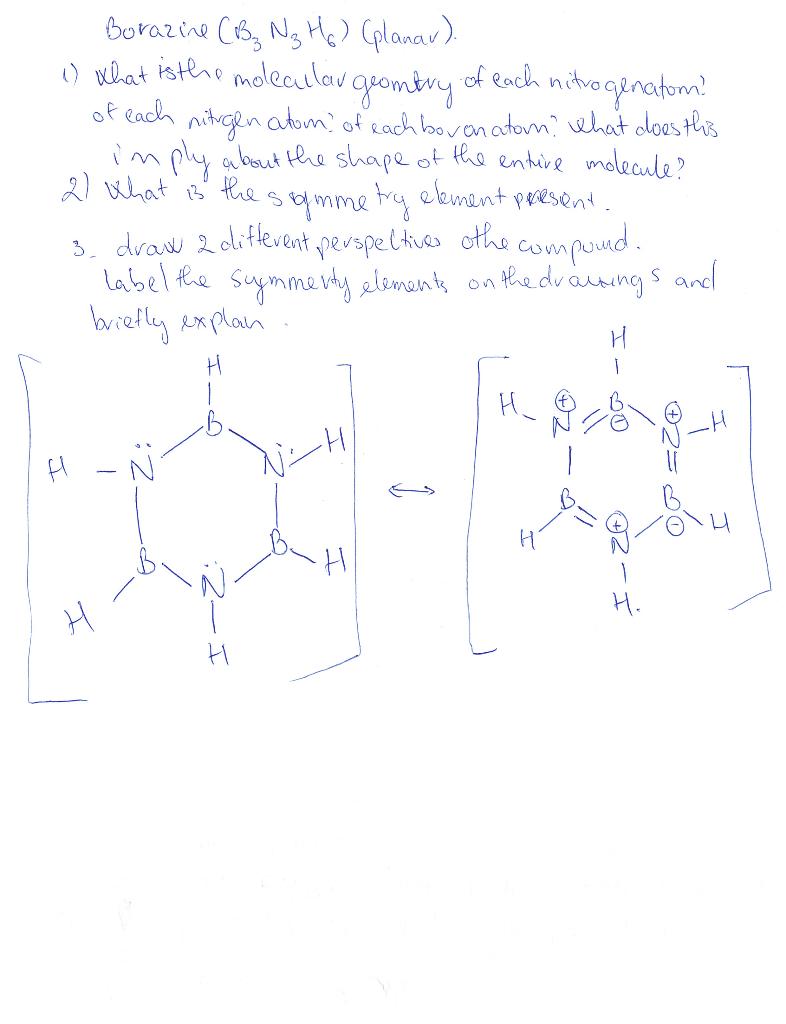 Borazine (B₃ N₃ H₆) (planar).
1) what is the molecular geomtry of each nitrogen atom?
of each nitrgen atom? of each boron atom? what does this
imply about the shape of the entire molecule?
2) what is the symmetry element present.
3- draw 2 different perspectives othe compound.
Label the symmerty elements on the drawings and
briefly explan.
H
H
B
H - N̈
N̈ - H
B
B - H
H
N̈
H
↔
H
H - N ⊕
B ⊖
⊕ N - H
B
B ⊖
H
⊕ N
H
H.